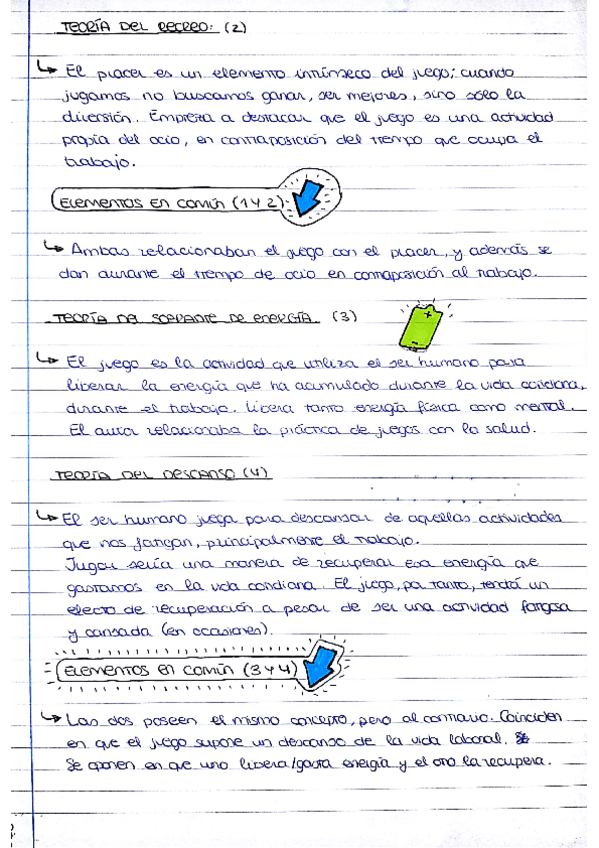 TEORÍA DEL RECREO: (2)
↳ El placer es un elemento intrínseco del juego; cuando
jugamos no buscamos ganar, ser mejores, sino sólo la
diversión. Empieza a destacar que el juego es una actividad
propia del ocio, en contraposición del tiempo que ocupa el
trabajo.
Elementos en común (1 y 2)
↳ Ambas relacionaban el juego con el placer, y además se
dan durante el tiempo de ocio en contraposición al trabajo.
TEORÍA DEL SOBRANTE DE ENERGÍA (3)
+
-
↳ El juego es la actividad que utiliza el ser humano para
liberar la energía que ha acumulado durante la vida cotidiana,
durante el trabajo. Libera tanto energía física como mental.
El autor relacionaba la práctica de juegos con la salud.
TEORÍA DEL DESCANSO (4)
↳ El ser humano juega para descansar de aquellas actividades
que nos fatigan, principalmente el trabajo.
Jugar sería una manera de recuperar esa energía que
gastamos en la vida cotidiana. El juego, por tanto, tendrá un
efecto de recuperación a pesar de ser una actividad fatigosa
y cansada (en ocasiones).
Elementos en común (3 y 4)
↳ Las dos poseen el mismo concepto, pero al contrario. Coinciden
en que el juego supone un descanso de la vida laboral.
Se oponen en que uno libera/gasta energía y el otro la recupera.